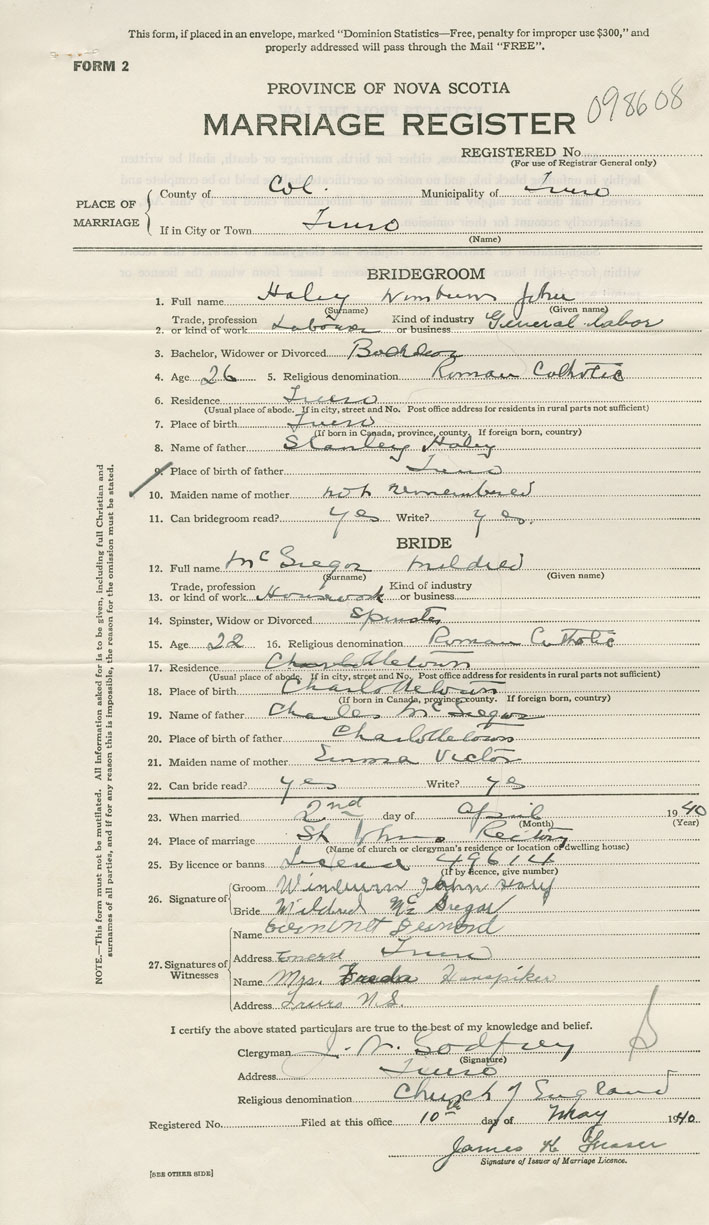 This form, if placed in an envelope, marked “Dominion Statistics—Free, penalty for improper use $300,” and
properly addressed will pass through the Mail “FREE”.
FORM 2
PROVINCE OF NOVA SCOTIA
098608
MARRIAGE REGISTER
REGISTERED No.
(For use of Registrar General only)
PLACE OF MARRIAGE
County of Col. Municipality of Truro
If in City or Town Truro
(Name)
BRIDEGROOM
1. Full name Haley Winburn John
(Surname) (Given name)
2. Trade, profession or kind of work Labourer Kind of industry or business General labor
3. Bachelor, Widower or Divorced Bachelor
4. Age 26 5. Religious denomination Roman Catholic
6. Residence Truro
(Usual place of abode. If in city, street and No. Post office address for residents in rural parts not sufficient)
7. Place of birth Truro
(If born in Canada, province, county. If foreign born, country)
8. Name of father Stanley Haley
9. Place of birth of father Truro
10. Maiden name of mother not remembered
11. Can bridegroom read? yes Write? yes.
BRIDE
12. Full name McGregor Mildred
(Surname) (Given name)
13. Trade, profession or kind of work Housework Kind of industry or business
14. Spinster, Widow or Divorced Spinster
15. Age 22 16. Religious denomination Roman Catholic
17. Residence Charlottetown
(Usual place of abode. If in city, street and No. Post office address for residents in rural parts not sufficient)
18. Place of birth Charlottetown
(If born in Canada, province, county. If foreign born, country)
19. Name of father Charles McGregor
20. Place of birth of father Charlottetown
21. Maiden name of mother Emma Victor
22. Can bride read? yes Write? yes
23. When married 2nd day of April 1940
(Month) (Year)
24. Place of marriage St Johns Rectory
(Name of church or clergyman's residence or location of dwelling house)
25. By licence or banns 49614
(If by licence, give number)
26. Signature of
Groom Winburn John Haly
Bride Mildred McGregor
27. Signatures of Witnesses
Name Desmond
Address Truro
Name Mrs. Freda
Address Truro N.S.
I certify the above stated particulars are true to the best of my knowledge and belief.
Clergyman J. W. Godfrey
(Signature)
Address Truro
Religious denomination Church of England
Registered No. Filed at this office 10th day of May 1940
James K Fraser
Signature of Issuer of Marriage Licence.
[SEE OTHER SIDE]
NOTE.—This form must not be mutilated. All information asked for is to be given, including full Christian and
surnames of all parties, and if for any reason this is impossible, the reason for the omission must be stated.